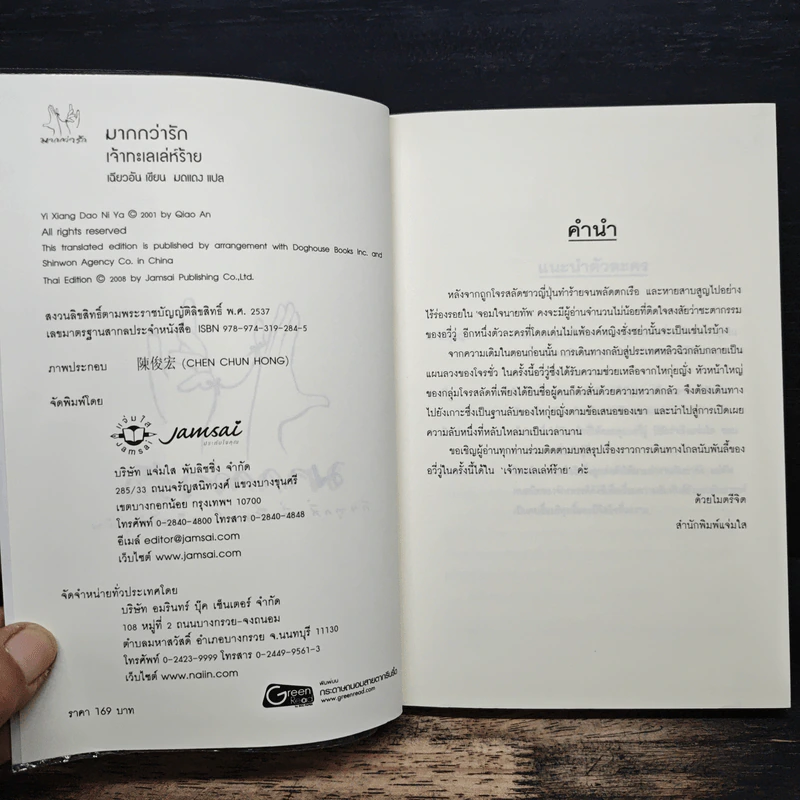 มากกว่ารัก
มากกว่ารัก
เจ้าทะเลเล่ห์ร้าย
เฉียวอัน เขียน มดแดง แปล
Yi Xiang Dao Ni Ya © 2001 by Qiao An
All rights reserved
This translated edition is published by arrangement with Doghouse Books Inc. and
Shinwon Agency Co. in China
Thai Edition © 2008 by Jamsai Publishing Co.,Ltd.
สงวนลิขสิทธิ์ตามพระราชบัญญัติลิขสิทธิ์ พ.ศ. 2537
เลขมาตรฐานสากลประจำหนังสือ ISBN 978-974-319-284-5
ภาพประกอบ 陳俊宏 (CHEN CHUN HONG)
จัดพิมพ์โดย
แจ่มใส
JAMSAI
Jamsai
บริษัท แจ่มใส พับลิชชิ่ง จำกัด
285/33 ถนนจรัญสนิทวงศ์ แขวงบางขุนศรี
เขตบางกอกน้อย กรุงเทพฯ 10700
โทรศัพท์ 0-2840-4800 โทรสาร 0-2840-4848
อีเมล์ editor@jamsai.com
เว็บไซต์ www.jamsai.com
จัดจำหน่ายทั่วประเทศโดย
บริษัท อมรินทร์ บุ๊ค เซ็นเตอร์ จำกัด
108 หมู่ที่ 2 ถนนบางกรวย-จงถนอม
ตำบลมหาสวัสดิ์ อำเภอบางกรวย จ.นนทบุรี 11130
โทรศัพท์ 0-2423-9999 โทรสาร 0-2449-9561-3
เว็บไซต์ www.naiin.com
Green Read
พิมพ์บน
กระดาษถนอมสายตากรีนรี้ด
www.greenread.com
ราคา 169 บาท
คำนำ
แนะนำตัวละคร
หลังจากถูกโจรสลัดชาวญี่ปุ่นทำร้ายจนพลัดตกเรือ และหายสาบสูญไปอย่าง
ไร้ร่องรอยใน 'จอมใจนายทัพ' คงจะมีผู้อ่านจำนวนไม่น้อยที่ติดใจสงสัยว่าชะตากรรม
ของอวี้วู่ อีกหนึ่งตัวละครที่โดดเด่นไม่แพ้องค์หญิงซั่งซย่านั้นจะเป็นเช่นไรบ้าง
จากความเดิมในตอนก่อนนั้น การเดินทางกลับสู่ประเทศหลิวฉิวกลับกลายเป็น
แผนลวงของโจรชั่ว ในครั้งนี้อวี้วู่ซึ่งได้รับความช่วยเหลือจากไหกุ่ยญั่ง หัวหน้าใหญ่
ของกลุ่มโจรสลัดที่เพียงได้ยินชื่อผู้คนก็ตัวสั่นด้วยความหวาดกลัว จึงต้องเดินทาง
ไปยังเกาะซึ่งเป็นฐานลับของไหกุ่ยญั่งตามข้อเสนอของเขา และนำไปสู่การเปิดเผย
ความลับหนึ่งที่หลับใหลมาเป็นเวลานาน
ขอเชิญผู้อ่านทุกท่านร่วมติดตามบทสรุปเรื่องราวการเดินทางไกลนับพันลี้ของ
อวี้วู่ในครั้งนี้ได้ใน 'เจ้าทะเลเล่ห์ร้าย' ค่ะ
ด้วยไมตรีจิต
สำนักพิมพ์แจ่มใส